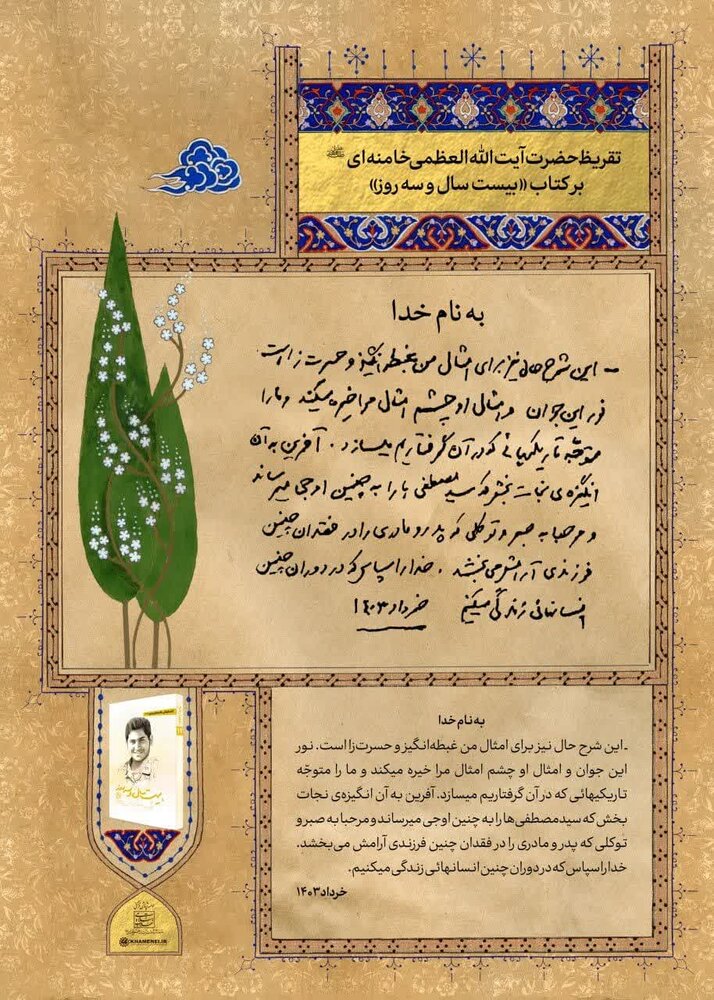 تقریظ حضرت آیت‌الله العظمی خامنه‌ای
بر کتاب «بیست سال و سه روز»
به نام خدا
- این شرح حال نیز برای امثال من غبطه‌انگیز و حسرت‌زا است.
نور این جوان و امثال او چشم امثال مرا خیره میکند و ما را
متوجّه تاریکیهائی که در آن گرفتاریم میسازد. آفرین به آن
انگیزه‌ی نجات بخش که سید مصطفی‌ها را به چنین اوجی میرساند
و مرحبا به صبر و توکلی که پدر و مادری را در فقدان چنین
فرزندی آرامش می‌بخشد. خدا را سپاس که در دوران چنین
انسانهائی زندگی میکنیم خرداد ۱۴۰۳
به نام خدا
ـ این شرح حال نیز برای امثال من غبطه‌انگیز و حسرت‌زا است. نور
این جوان و امثال او چشم امثال مرا خیره میکند و ما را متوجّه
تاریکیهائی که در آن گرفتاریم میسازد. آفرین به آن انگیزه‌ی نجات
بخش که سیدمصطفی‌ها را به چنین اوجی میرساند و مرحبا به صبر و
توکلی که پدر و مادری را در فقدان چنین فرزندی آرامش می‌بخشد.
خدا را سپاس که در دوران چنین انسانهائی زندگی میکنیم.
خرداد ۱۴۰۳
بیست سال و سه روز
@KHAMENEI.IR